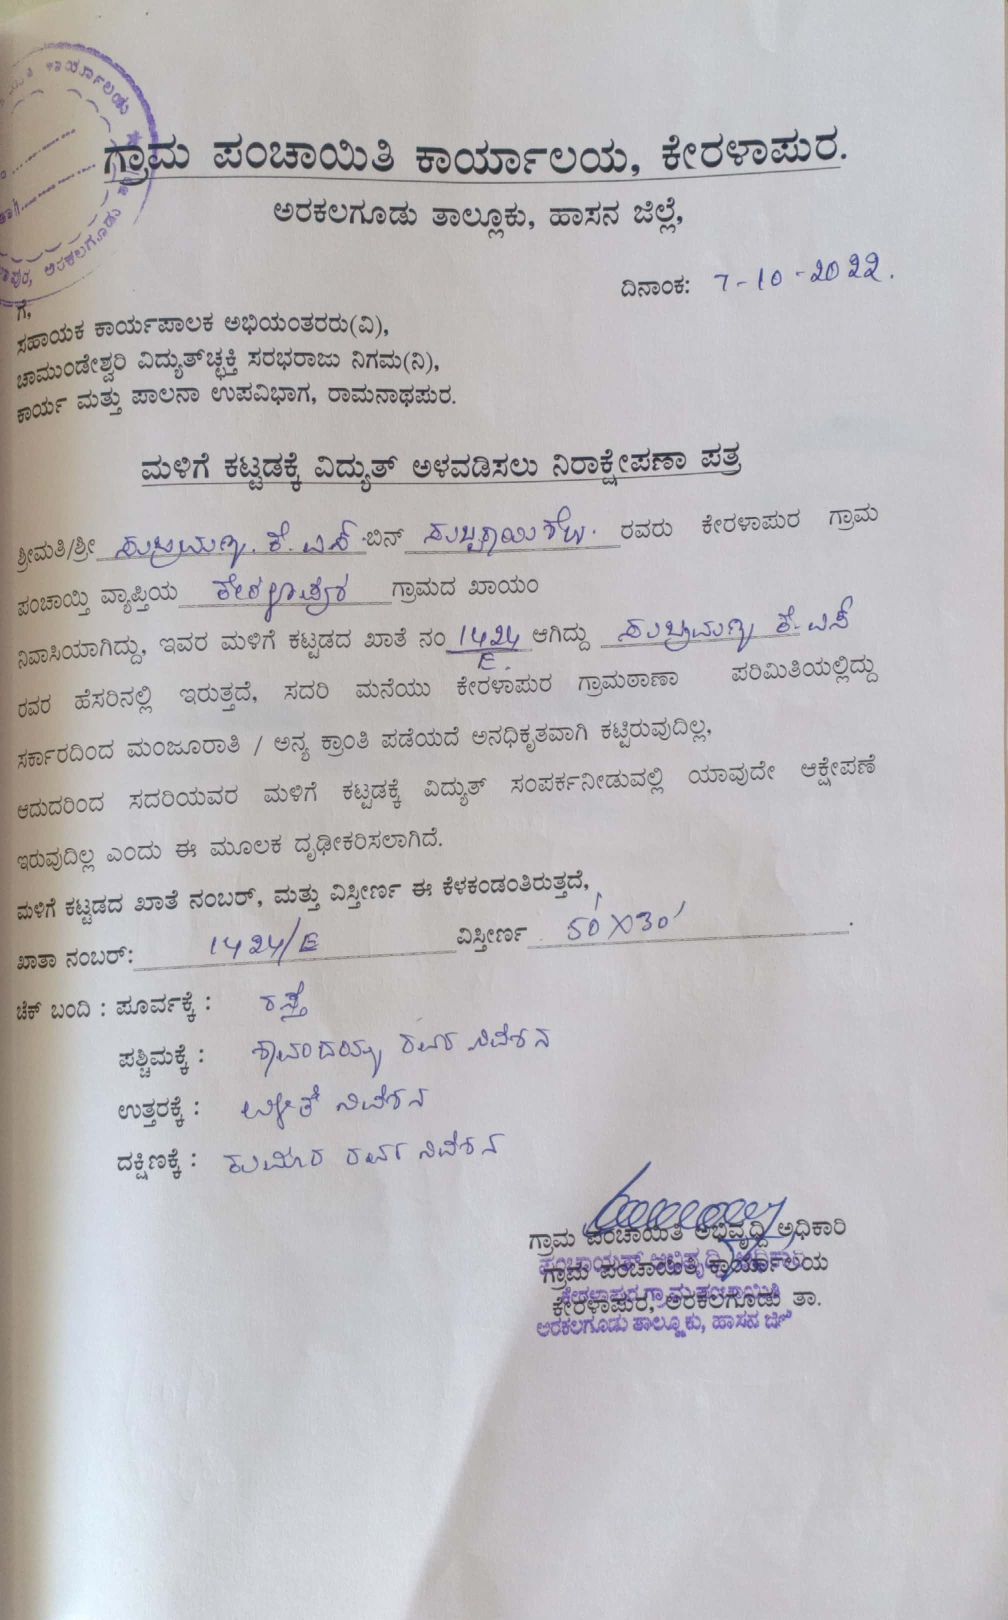 ಕಾರ್ಯಾಲಯ
ಅರಕಲಗೂಡು
ಗ್ರಾಮ ಪಂಚಾಯಿತಿ ಕಾರ್ಯಾಲಯ, ಕೇರಳಾಪುರ.
ಅರಕಲಗೂಡು ತಾಲ್ಲೂಕು, ಹಾಸನ ಜಿಲ್ಲೆ,
ದಿನಾಂಕ: 7-10-2022.
ಗೆ,
ಸಹಾಯಕ ಕಾರ್ಯಪಾಲಕ ಅಭಿಯಂತರರು(ವಿ),
ಚಾಮುಂಡೇಶ್ವರಿ ವಿದ್ಯುತ್‌ಚ್ಛಕ್ತಿ ಸರಭರಾಜು ನಿಗಮ(ನಿ),
ಕಾರ್ಯ ಮತ್ತು ಪಾಲನಾ ಉಪವಿಭಾಗ, ರಾಮನಾಥಪುರ.
ಮಳಿಗೆ ಕಟ್ಟಡಕ್ಕೆ ವಿದ್ಯುತ್ ಅಳವಡಿಸಲು ನಿರಾಕ್ಷೇಪಣಾ ಪತ್ರ
ಶ್ರೀಮತಿ/ಶ್ರೀ ಸುಬ್ರಮಣ್ಯ. ಕೆ. ಎಸ್ ಬಿನ್ ಸುಬ್ಬರಾಯಿಶೆಟ್ಟಿ. ರವರು ಕೇರಳಾಪುರ ಗ್ರಾಮ
ಪಂಚಾಯ್ತಿ ವ್ಯಾಪ್ತಿಯ ಕೇರಳಾಪುರ ಗ್ರಾಮದ ಖಾಯಂ
ನಿವಾಸಿಯಾಗಿದ್ದು, ಇವರ ಮಳಿಗೆ ಕಟ್ಟಡದ ಖಾತೆ ನಂ 1424/E. ಆಗಿದ್ದು ಸುಬ್ರಮಣ್ಯ ಕೆ. ಎಸ್
ರವರ ಹೆಸರಿನಲ್ಲಿ ಇರುತ್ತದೆ, ಸದರಿ ಮನೆಯು ಕೇರಳಾಪುರ ಗ್ರಾಮಠಾಣಾ ಪರಿಮಿತಿಯಲ್ಲಿದ್ದು
ಸರ್ಕಾರದಿಂದ ಮಂಜೂರಾತಿ / ಅನ್ಯ ಕ್ರಾಂತಿ ಪಡೆಯದೆ ಅನಧಿಕೃತವಾಗಿ ಕಟ್ಟಿರುವುದಿಲ್ಲ,
ಆದುದರಿಂದ ಸದರಿಯವರ ಮಳಿಗೆ ಕಟ್ಟಡಕ್ಕೆ ವಿದ್ಯುತ್ ಸಂಪರ್ಕನೀಡುವಲ್ಲಿ ಯಾವುದೇ ಆಕ್ಷೇಪಣೆ
ಇರುವುದಿಲ್ಲ ಎಂದು ಈ ಮೂಲಕ ದೃಢೀಕರಿಸಲಾಗಿದೆ.
ಮಳಿಗೆ ಕಟ್ಟಡದ ಖಾತೆ ನಂಬರ್, ಮತ್ತು ವಿಸ್ತೀರ್ಣ ಈ ಕೆಳಕಂಡಂತಿರುತ್ತದೆ,
ಖಾತಾ ನಂಬರ್: 1424/E ವಿಸ್ತೀರ್ಣ 50'X30' .
ಚೆಕ್ ಬಂದಿ : ಪೂರ್ವಕ್ಕೆ : ರಸ್ತೆ
ಪಶ್ಚಿಮಕ್ಕೆ : ರವರ ನಿವೇಶನ
ಉತ್ತರಕ್ಕೆ : ನಿವೇಶನ
ದಕ್ಷಿಣಕ್ಕೆ : ಕುಮಾರ ರವರ ನಿವೇಶನ
ಗ್ರಾಮ ಪಂಚಾಯಿತಿ ಅಭಿವೃದ್ಧಿ ಅಧಿಕಾರಿ
ಗ್ರಾಮ ಪಂಚಾಯಿತಿ ಕಾರ್ಯಾಲಯ
ಕೇರಳಾಪುರ, ಅರಕಲಗೂಡು ತಾ.
ಅರಕಲಗೂಡು ತಾಲ್ಲೂಕು, ಹಾಸನ ಜಿಲ್ಲೆ